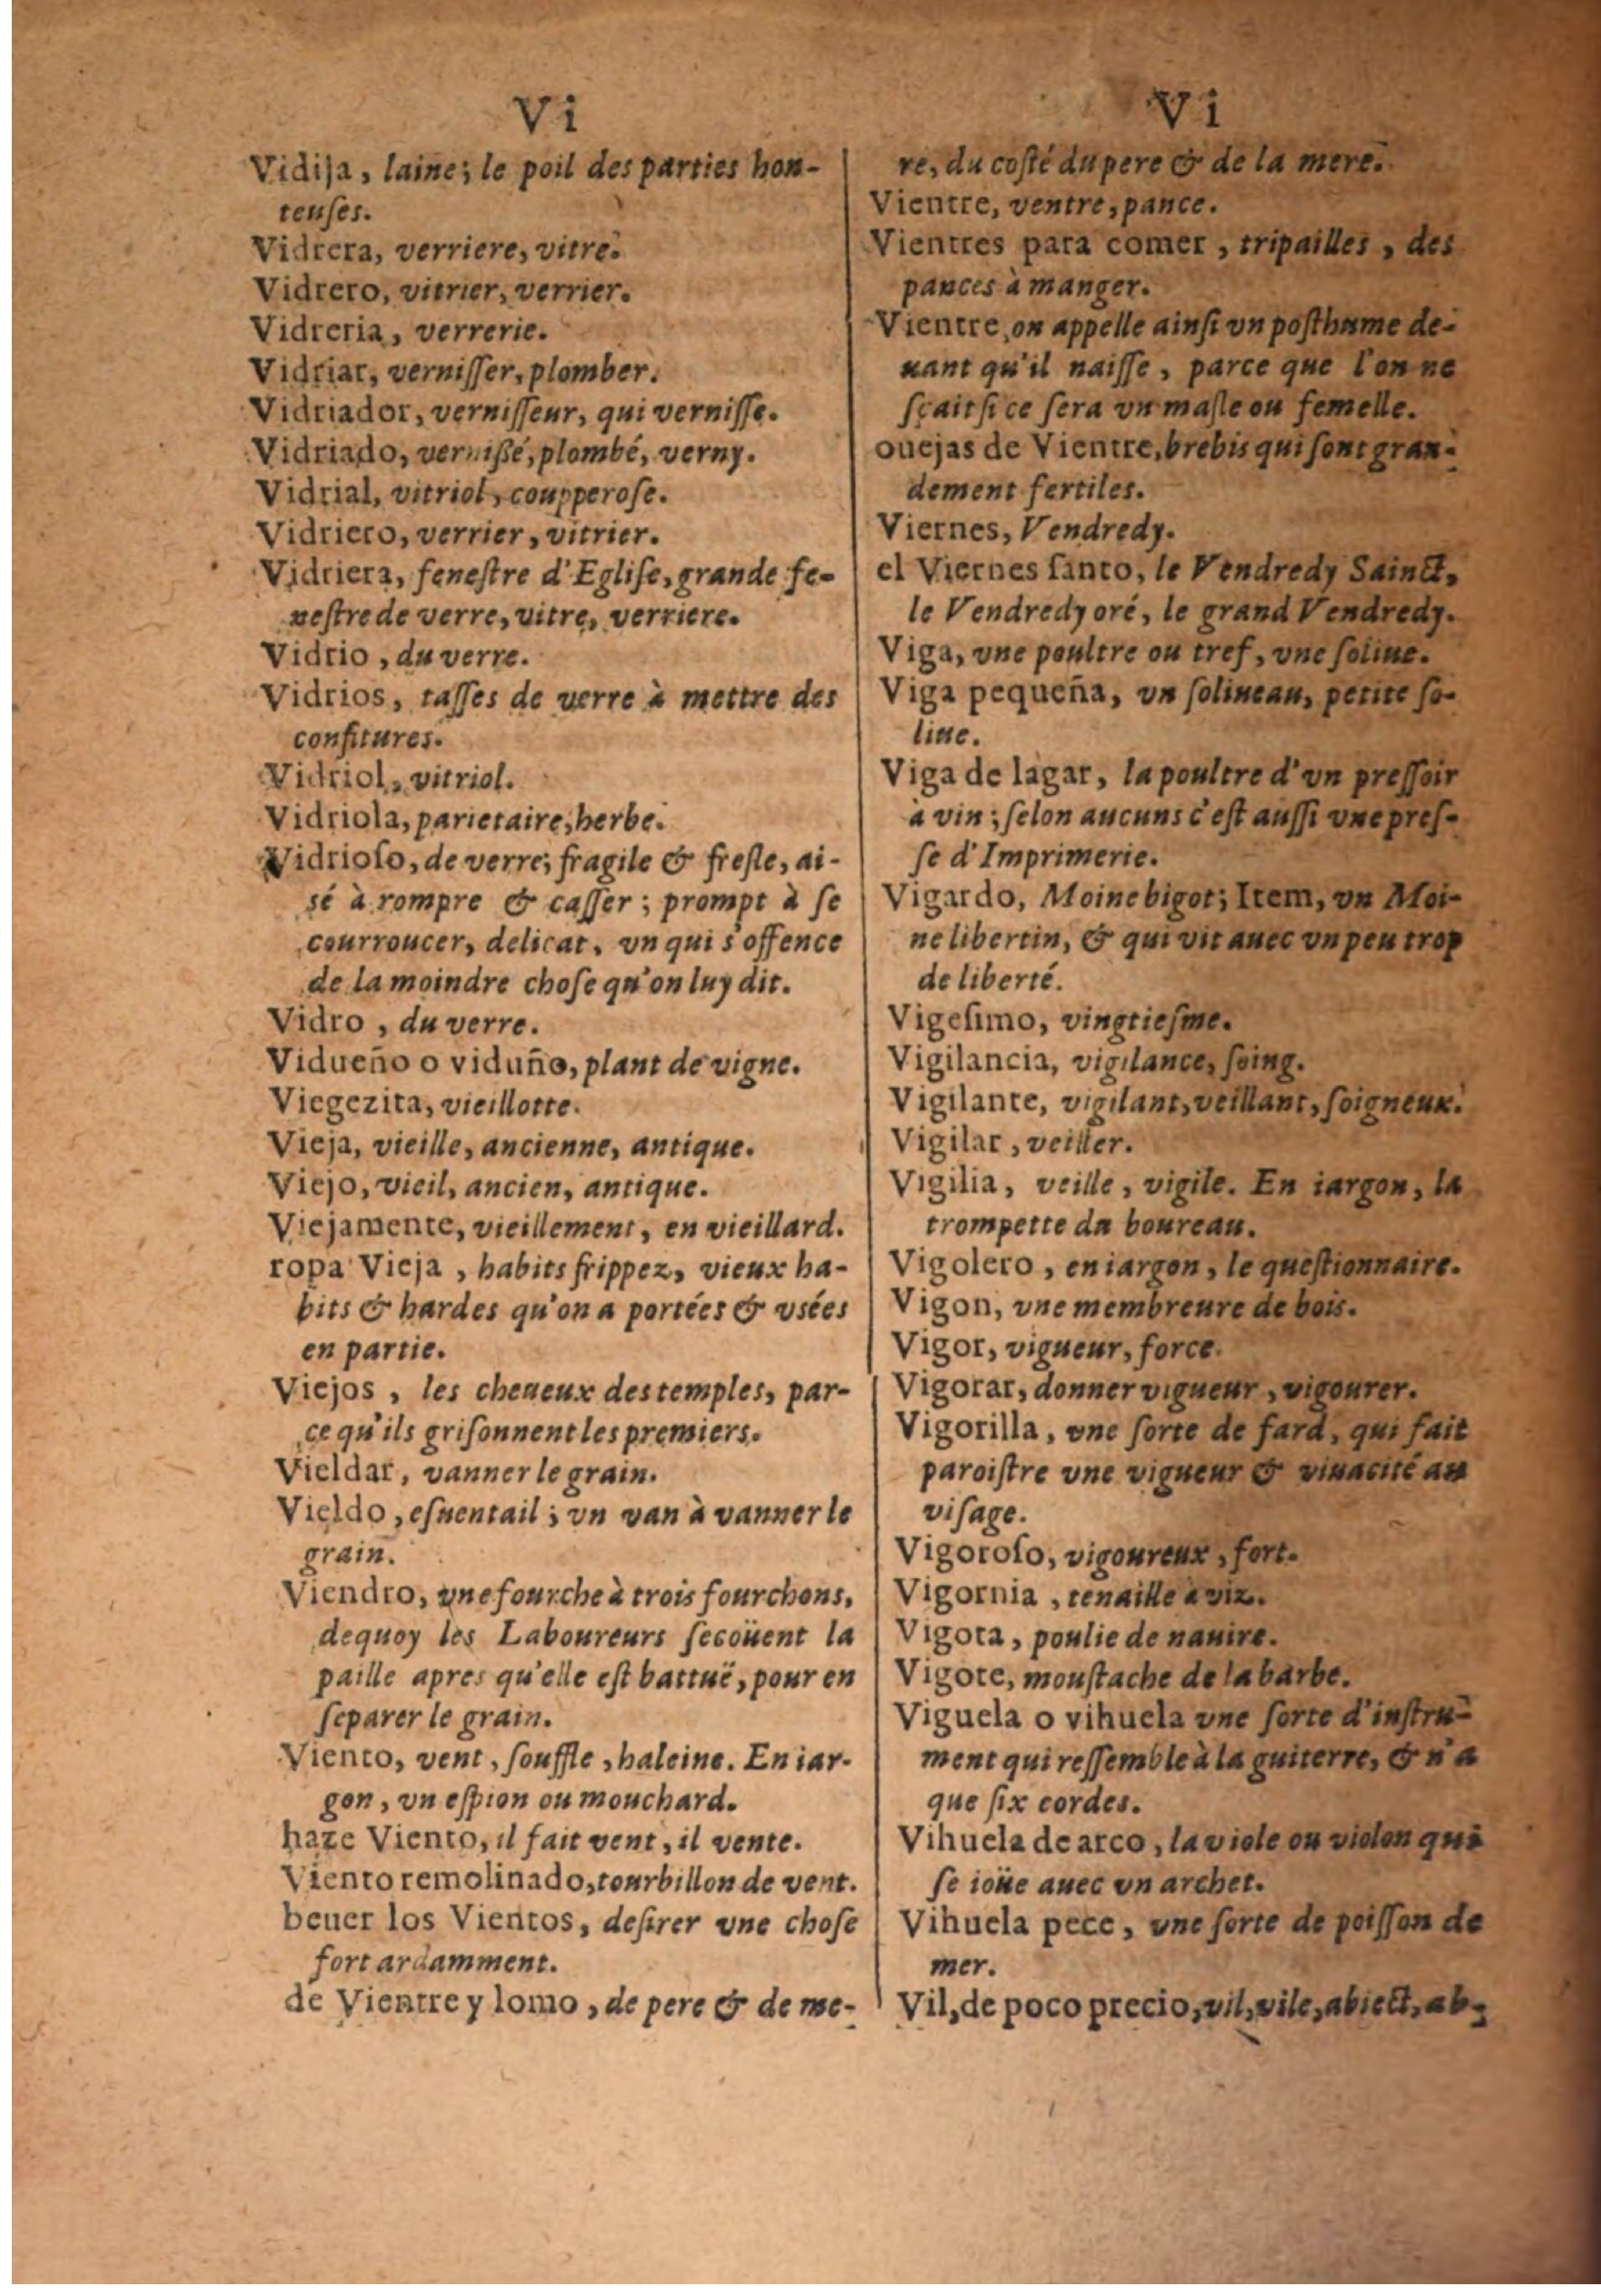 Vi
Vidija, laine; le poil des parties hon-
teuſes.
Vidrera, verriere, vitre.
Vidrero, vitrier, verrier.
Vidreria, verrerie.
Vidriar, verniſſer, plomber.
Vidriador, verniſſeur, qui verniſſe.
Vidriado, verniſſé, plombé, verny.
Vidrial, vitriol, coupperoſe.
Vidriero, verrier, vitrier.
Vidriera, feneſtre d'Egliſe, grande fe-
neſtre de verre, vitre, verriere.
Vidrio, du verre.
Vidrios, taſſes de verre à mettre des
confitures.
Vidriol, vitriol.
Vidriola, parietaire, herbe.
Vidrioſo, de verre; fragile & freſle, ai-
sé à rompre & caſſer; prompt à ſe
courroucer, delicat, vn qui s'offence
de la moindre choſe qu'on luy dit.
Vidro, du verre.
Vidueño o viduño, plant de vigne.
Viegezita, vieillotte.
Vieja, vieille, ancienne, antique.
Viejo, vieil, ancien, antique.
Viejamente, vieillement, en vieillard.
ropa Vieja, habits frippez, vieux ha-
bits & hardes qu'on a portées & vsées
en partie.
Viejos, les cheueux des temples, par-
ce qu'ils griſonnent les premiers.
Vieldar, vanner le grain.
Vieldo, eſuentail; vn van à vanner le
grain.
Viendro, vne fourche à trois fourchons,
dequoy les Laboureurs ſecoüent la
paille apres qu'elle eſt battuë, pour en
ſeparer le grain.
Viento, vent, ſouffle, haleine. En iar-
gon, vn eſpion ou mouchard.
haze Viento, il fait vent, il vente.
Viento remolinado, tourbillon de vent.
beuer los Vientos, deſirer vne choſe
fort ardamment.
de Vientre y lomo, de pere & de me-
Vi
re, du coſté du pere & de la mere.
Vientre, ventre, pance.
Vientres para comer, tripailles, des
pances à manger.
Vientre, on appelle ainſi vn poſthume de-
uant qu'il naiſſe, parce que l'on ne
ſçait ſi ce ſera vn maſle ou femelle.
ouejas de Vientre, brebis qui ſont gran-
dement fertiles.
Viernes, Vendredy.
el Viernes ſanto, le Vendredy Sainct,
le Vendredy oré, le grand Vendredy.
Viga, vne poultre ou tref, vne ſoliue.
Viga pequeña, vn ſolineau, petite ſo-
liue.
Viga de lagar, la poultre d'vn preſſoir
à vin; ſelon aucuns c'eſt auſſi vne preſ-
ſe d'Imprimerie.
Vigardo, Moine bigot; Item, vn Moi-
ne libertin, & qui vit auec vn peu trop
de liberté.
Vigeſimo, vingtieſme.
Vigilancia, vigilance, ſoing.
Vigilante, vigilant, veillant, ſoigneux.
Vigilar, veiller.
Vigilia, veille, vigile. En iargon, la
trompette du boureau.
Vigolero, en iargon, le queſtionnaire.
Vigon, vne membreure de bois.
Vigor, vigueur, force.
Vigorar, donner vigueur, vigourer.
Vigorilla, vne ſorte de fard, qui fait
paroiſtre vne vigueur & viuacité au
viſage.
Vigoroſo, vigoureux, fort.
Vigornia, tenaille à viz.
Vigota, poulie de nauire.
Vigote, mouſtache de la barbe.
Viguela o vihuela vne ſorte d'inſtru-
ment qui reſſemble à la guiterre, & n'a
que ſix cordes.
Vihuela de arco, la viole ou violon qui
ſe ioüe auec vn archet.
Vihuela pece, vne ſorte de poiſſon de
mer.
Vil, de poco precio, vil, vile, abiect, ab-